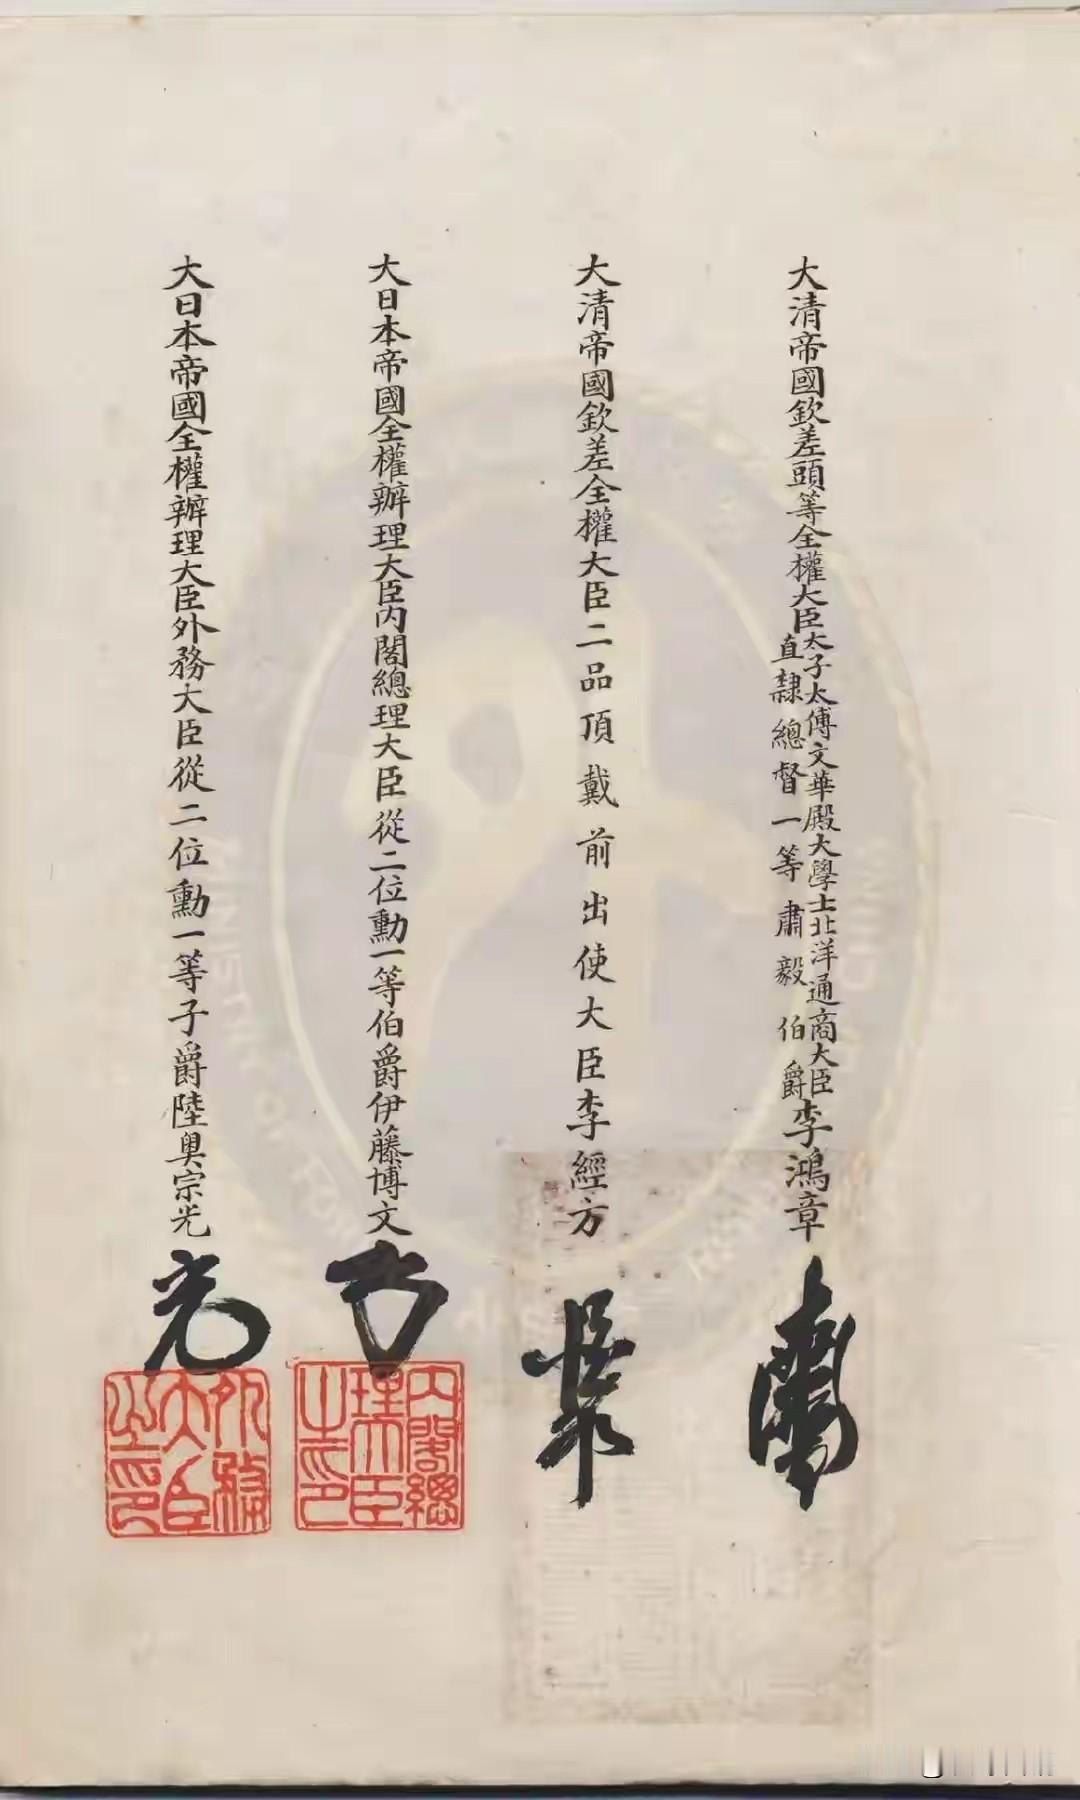 大清帝國欽差頭等全權大臣太子太傅文華殿大學士北洋通商大臣
直隸總督一等肅毅伯爵李鴻章
大清帝國欽差全權大臣二品頂戴前出使大臣李經方
大日本帝國全權辦理大臣內閣總理大臣從二位勳一等伯爵伊藤博文
大日本帝國全權辦理大臣外務大臣從二位勳一等子爵陸奧宗光
內閣總
理大臣
之印
外務
大臣
之印